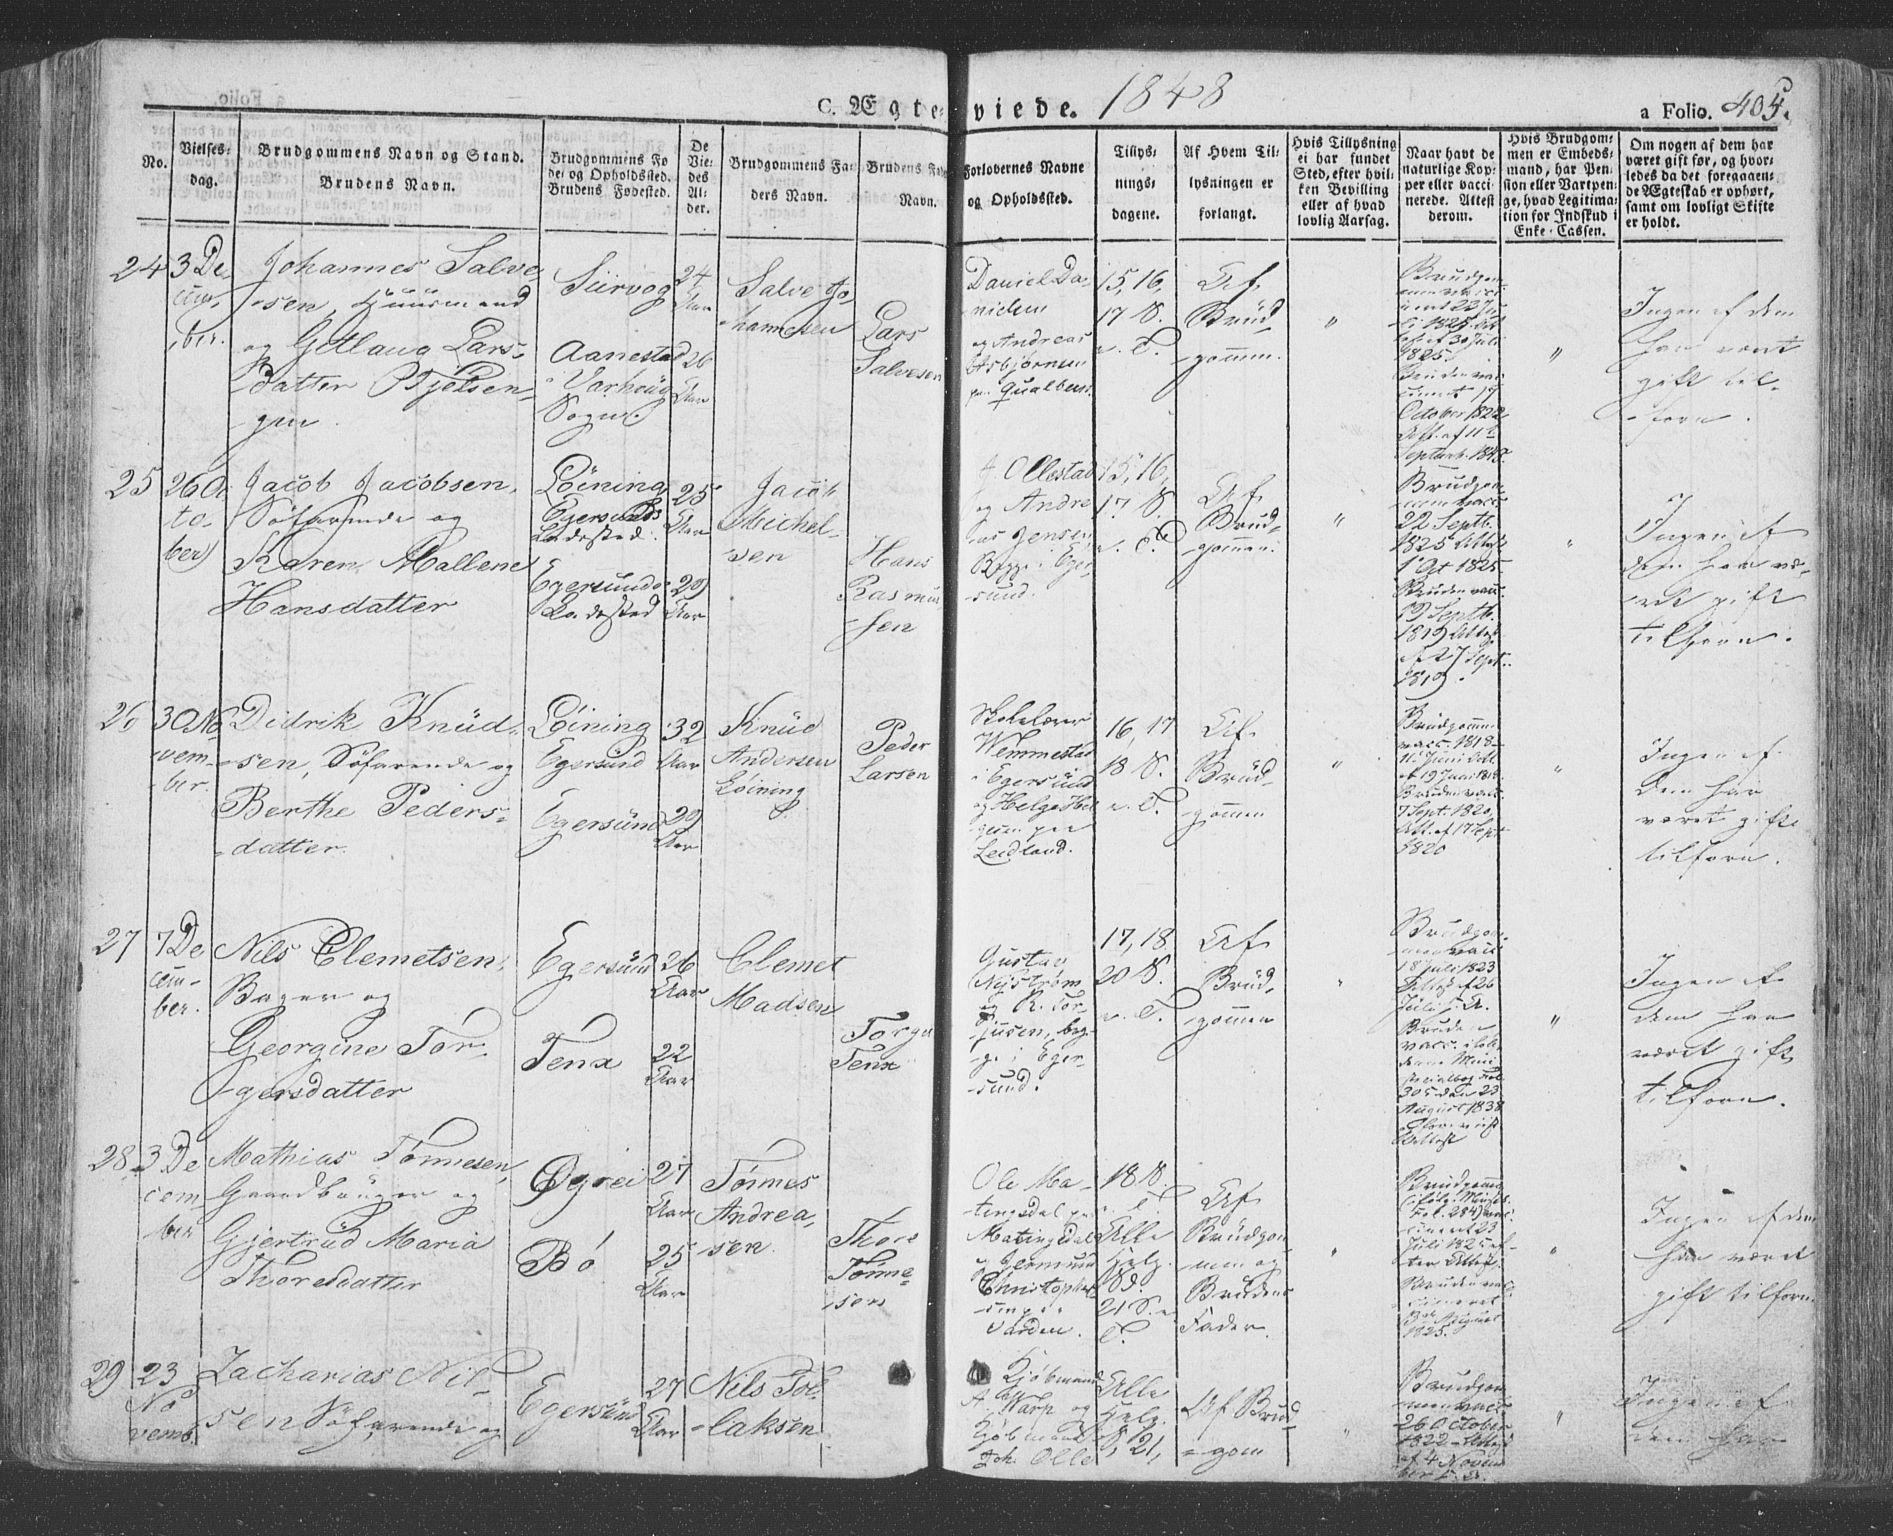 C. Ægte-viede. 1848
a Folio. 405.
No.
Vielses-
dag.
Brudgommens Navn og Stand.
Brudens Navn.
Brudgommens Fø
de- og Opholdssted.
Brudens Fødested.
De
Vie-
des
Al-
der.
Brudgommens Fa-
ders Navn.
Brudens
Navn.
Forlovernes Navne
og Opholdssted.
Tillys-
nings-
dagene.
Af Hvem Til-
lysningen er
forlangt.
Hvis Tillysning
ei har fundet
Sted, efter hvil-
ken Bevilling
eller af hvad
lovlig Aarsag.
Naar havt de
naturlige Kop-
per eller vacci-
nerede. Attest
derom.
Hvis Brudgom-
men er Embeds-
mand, har Pen-
sion eller Vartpen-
ge, hvad Legitima-
tion for Indskud i
Enke-Cassen.
Om nogen af dem har
været gift før, og hvor-
ledes da det foregaaen-
de Ægteskab er ophørt,
samt om lovligt Skifte
er holdt.
24
3 De
cem-
ber.
Johannes Salve-
-sen, Huusmand
og Gitlaug Lars-
datter
Siirvog
Aanestad
Varhoug
Sogn.
24
Aar
26
Aar
Salve Jo-
hannesen
Lars
Salvesen
Daniel Da-
nielsen
og Andreas
Asbjørnsen
15, 16,
17 S.
e. T.
Af
Brüd-
gommen.
"
Brudgom-
1825
Bruden vac-
October 1822
Att. af 11te
"
Ingen af dem
har været
gift til-
-forn.
25
26 Oc
to-
ber
Jacob Jacobsen,
Söfarende og
Karen Mallene
Hansdatter
Löining
Egersunds
Ladested.
Egersunds
Ladested
25
Aar
29
Aar
Jacob
Michel-
sen
Hans
Rasmus-
sen
A. Ollestad
og Andre
as Jensen
i Eger-
sund.
15, 16,
17 S.
e. T.
Af
Brud-
gommen.
"
Brudgom-
men vacc.
22 Septb.
1825 Attest
1 Oct 1825.
Bruden vacc.
19 Septb.
1819 Attest
af 27 Sept.
1819.
"
Ingen af
dem har væ-
ret gift
tilforn.
26
30 No
vem-
ber.
Didrik Knüd-
-sen, Söfarende og
Berthe Peders-
-datter.
Löining
Egersund
Egersünd
32
Aar
29
Aar
Knüd
Andersen
Löining
Peder
Larsen
Skolelærer
Wemmestad
i Egersünd
og Helge Hel
gesen paa
Leidland.
16, 17
18 S.
e. T.
Af
Brüd-
gommen
"
Brudgommen
vacc. 1818
11 Juni Att.
af 19 Juni 1818
Bruden vacc.
7 Sept. 1820,
Att. af 17 Sept
1820
"
Ingen af
dem har
været gift
tilforn.
27
7 De
cem-
ber.
Nils Clemetsen,
Bager og
Georgine Tor-
gersdatter
Egersünd
Tenx
26
Aar
22
Aar
Clemet
Madsen
Torger
Tenx
Gustav
Nystrøm
og R. Tor-
jusen, beg-
ge i Eger-
sund.
17, 18
20 S.
e. T.
Af
Brüd-
gommen
"
Brudgom-
men vacc
18 Juli 1823
Attest af 26
Juli s. A.
Bruden
vacc. ifølge
denne Mini-
sterialbog Fol
305 den 23
August 1838
Attest
"
Ingen af
dem har
været gift
tilforn.
28
3 De
cem
ber
Mathias Tönnesen,
Gaardbruger og
Gjertrüd Maria
Thoresdatter
Øgrei
Bö
27
Aar
25
Aar
Tönnes
Andrea-
sen.
Thore
Tönne-
sen
Ole Ma-
tingsdal paa
Matingsdal
og Germund
Christophers-
Varden.
18 S.
e. T.
Alle
Helg.
21 S. e
T.
Af
Brüdgom-
men og
Brudens
Fader.
"
Brudgommen
(ifølg. Minist.
Fol. 284) vac-
cineret 23
Juli 1825 ef-
ter Attest.
Bruden vac-
cineret
1825.
"
Ingen af dem
har været
gift tilforn.
29
23
No
vemb.
Zacharias Nil-
sen Söfarende og
Egersünd
27
Aar
Nils Tol-
-laksen
Kjöbmand
A. Warp og
Kjöbmand
Joh. Olle
Alle
Helg.
S, 21,
Af Brud-
-gom
"
Brudgom-
men vacc.
26 October
1822 Attest
af 4 Novem
ber s. A.
"
Ingen af
dem har